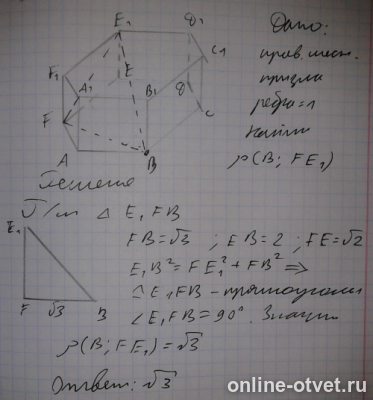 E₁ D₁
F₁ C₁
A₁ E B₁ D
F C
A B
Дано:
прав. шест.
призма
ребро=1
Найти
ρ(B; FE₁)
Решение
Δ E₁FB
E₁
FB=√3 ; EB=2 ; FE=√2
E₁B²=FE₁²+FB² ⇒
Δ E₁FB –
∠E₁FB=90°. Значит
F √3 B
ρ(B; FE₁)=√3
Ответ: √3
online-otvet.ru